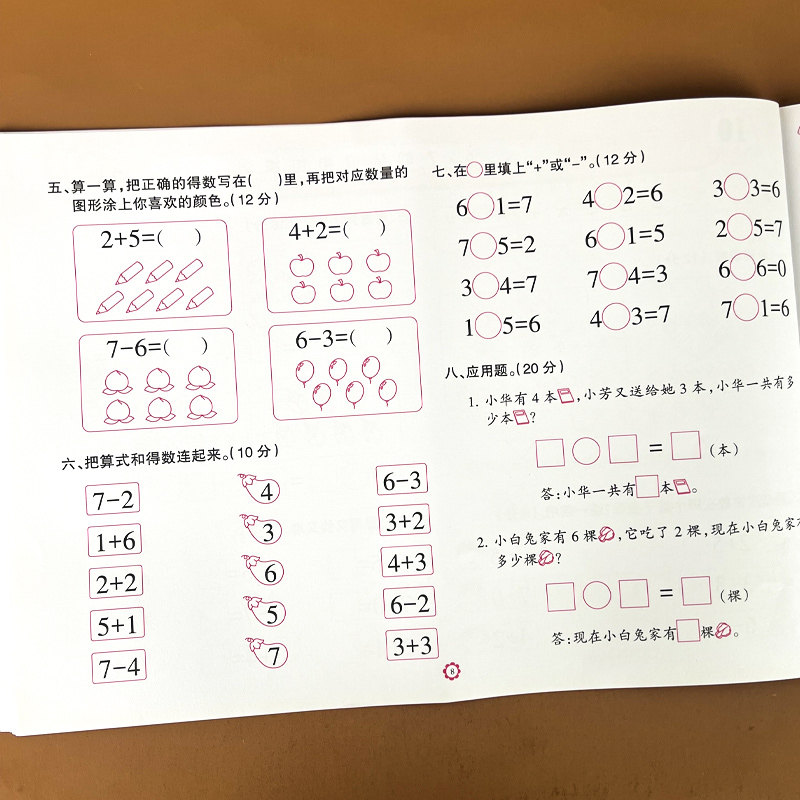 五、算一算,把正确的得数写在(  )里,再把对应数量的
图形涂上你喜欢的颜色。(12分)
2+5=(  )
4+2=(  )
7-6=(  )
6-3=(  )
六、把算式和得数连起来。(10分)
7-2 4 6-3
1+6 3 3+2
2+2 6 4+3
5+1 5 6-2
7-4 7 3+3
8
七、在○里填上“+”或“-”。(12分)
6○1=7 4○2=6 3○3=6
7○5=2 6○1=5 2○5=7
3○4=7 7○4=3 6○6=0
1○5=6 4○3=7 7○1=6
八、应用题。(20分)
1. 小华有4本,小芳又送给她3本,小华一共有多
少本?
□○□=□(本)
答:小华一共有□本。
2. 小白兔家有6棵,它吃了2棵,现在小白兔家有
多少棵?
□○□=□(棵)
答:现在小白兔家有□棵。